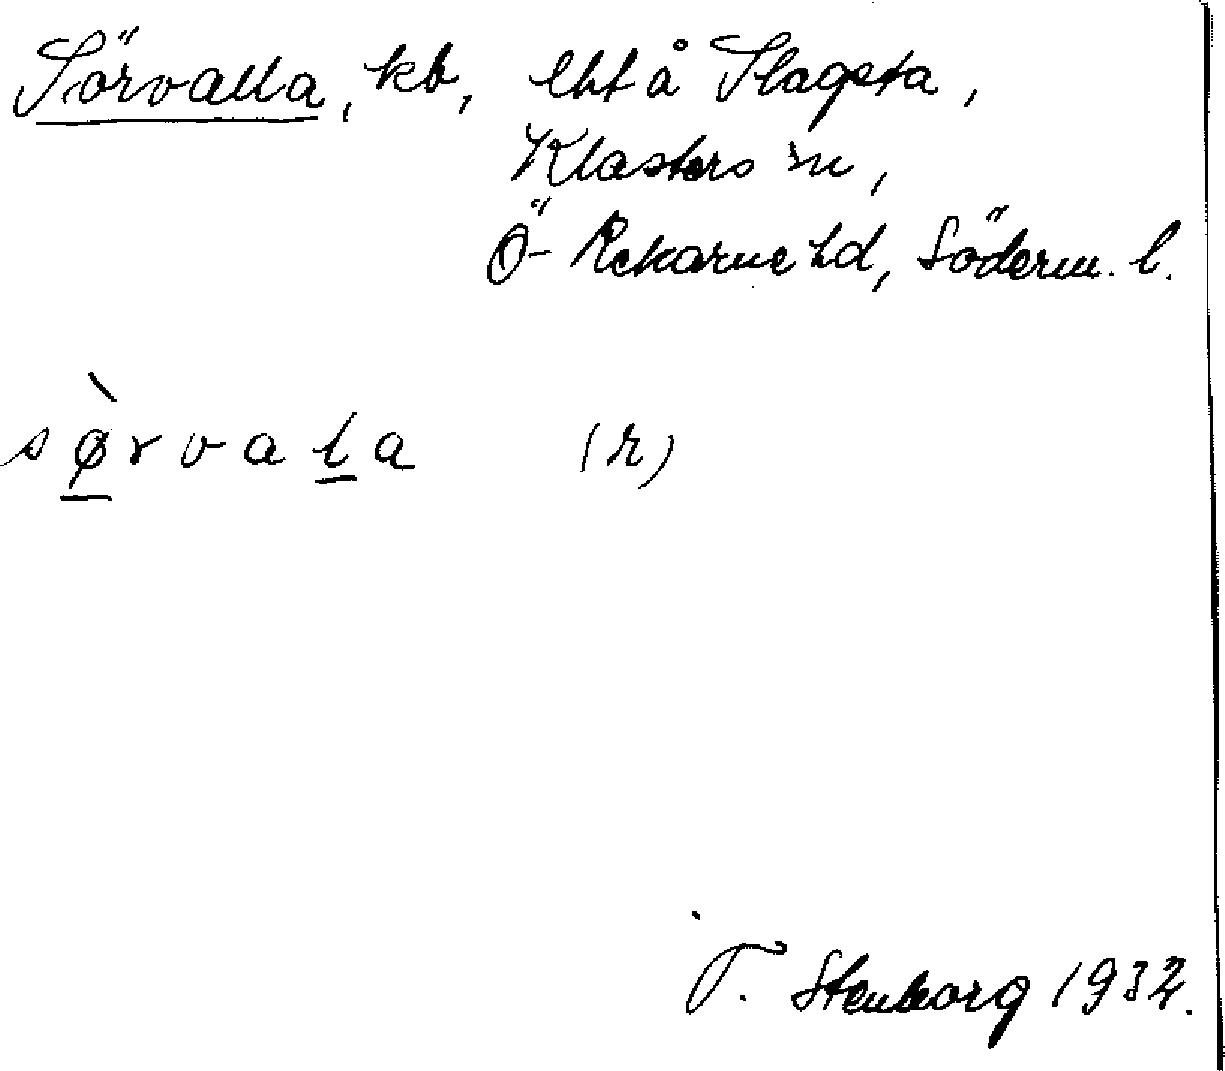 Sörvalla, kb, lht å Slagsta,
Klosters sn,
Ö- Rekarne hd, Söderm. l.
sø̀rvala (r)
T. Stenborg 1932.